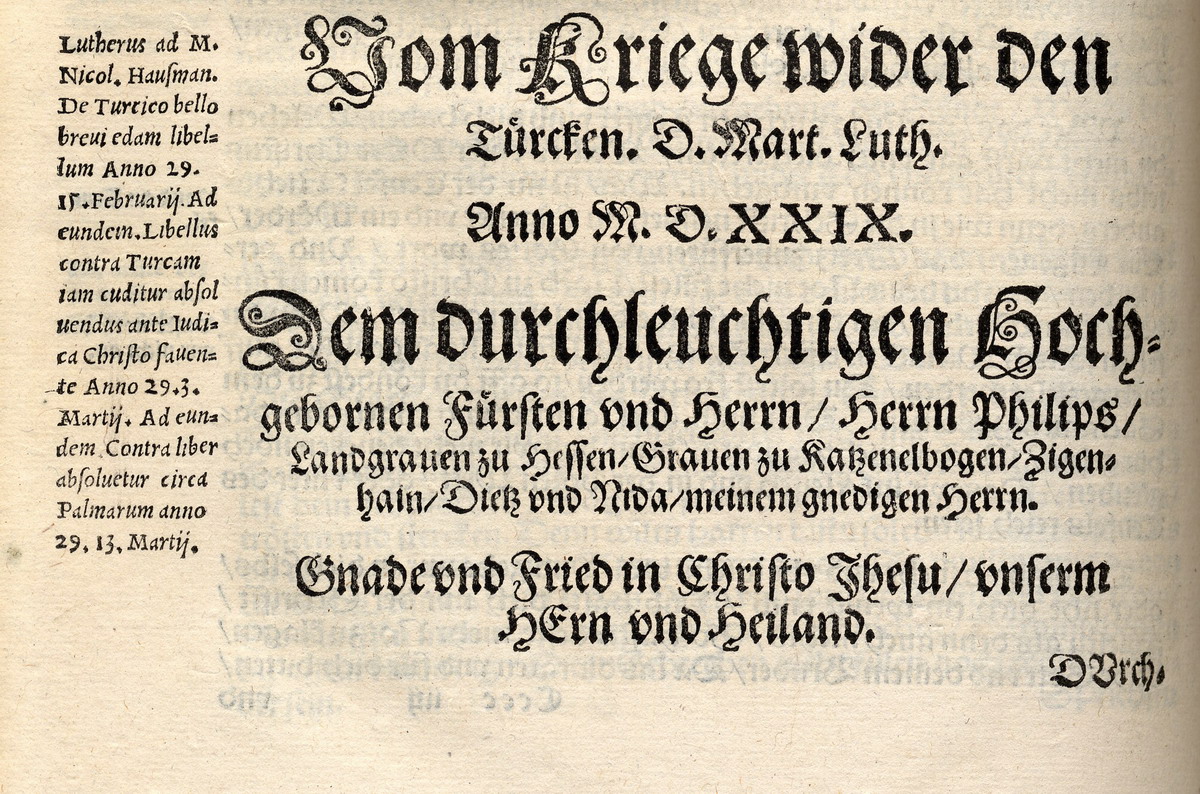 Lutherus ad M.
Nicol. Hauſman.
De Turcico bello
breui edam libel=
lum Anno 29.
15. Februarij. Ad
eundem. Libellus
contra Turcam
iam cuditur abſol
uendus ante Iudi=
ca Chriſto fauen=
te Anno 29. 3.
Martij. Ad eun=
dem Contra liber
abſoluetur circa
Palmarum anno
29. 13. Martij.
Vom Kriege wider den
Türcken. D. Mart. Luth.
Anno M. D. XXIX.
Dem durchleuchtigen Hoch=
gebornen Fürſten vnd Herrn / Herrn Philips /
Landgrauen zu Heſſen / Grauen zu Katzenelbogen / Zigen=
hain / Dietz vnd Nida / meinem gnedigen Herrn.
Gnade vnd Fried in Chriſto Jheſu / vnſerm
HErn vnd Heiland.
DVrch=